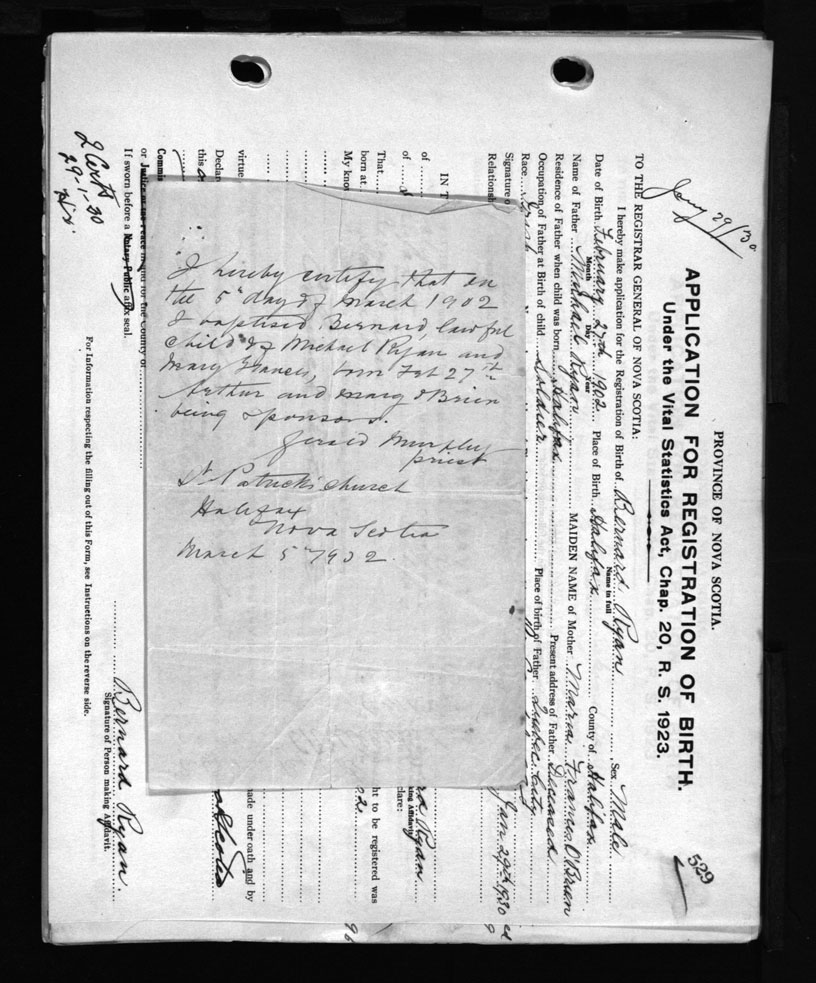 Jany 29/30
529
PROVINCE OF NOVA SCOTIA.
APPLICATION FOR REGISTRATION OF BIRTH.
Under the Vital Statistics Act, Chap. 20, R. S. 1923.
TO THE REGISTRAR GENERAL OF NOVA SCOTIA:
I hereby make application for the Registration of Birth of Bernard Ryan Sex Male
Name in full
Date of Birth February 27th 1902 Place of Birth Halifax County of Halifax
Month Day Year
Name of Father Michael Ryan MAIDEN NAME of Mother Maria Frances O'Brien
Residence of Father when child was born Halifax Present address of Father Deceased
Occupation of Father at Birth of child Soldier Place of birth of Father Quebec City
Race Irish
Signature o
Relationsh Jan 29th 1930
IN T
of
of Ryan
king Affidavit
clare:
That
born at ht to be registered was
My kno
virtue ade under oath and by
Declar
this
Commis
or Justice of the Peace in and for the County of
If sworn before a Notary Public affix seal.
Bernard Ryan.
Signature of Person making Affidavit.
For Information respecting the filling out of this Form, see Instructions on the reverse side.
2 Certs
29-1-30
I hereby certify that on
the 5th day of March 1902
I baptised Bernard, lawful
child of Michael Ryan and
Mary Frances, born Feb 27th
Arthur and Mary O'Brien
being sponsors.
Gerald Murphy
priest
St Patrick's Church
Halifax
Nova Scotia
March 5th 1902